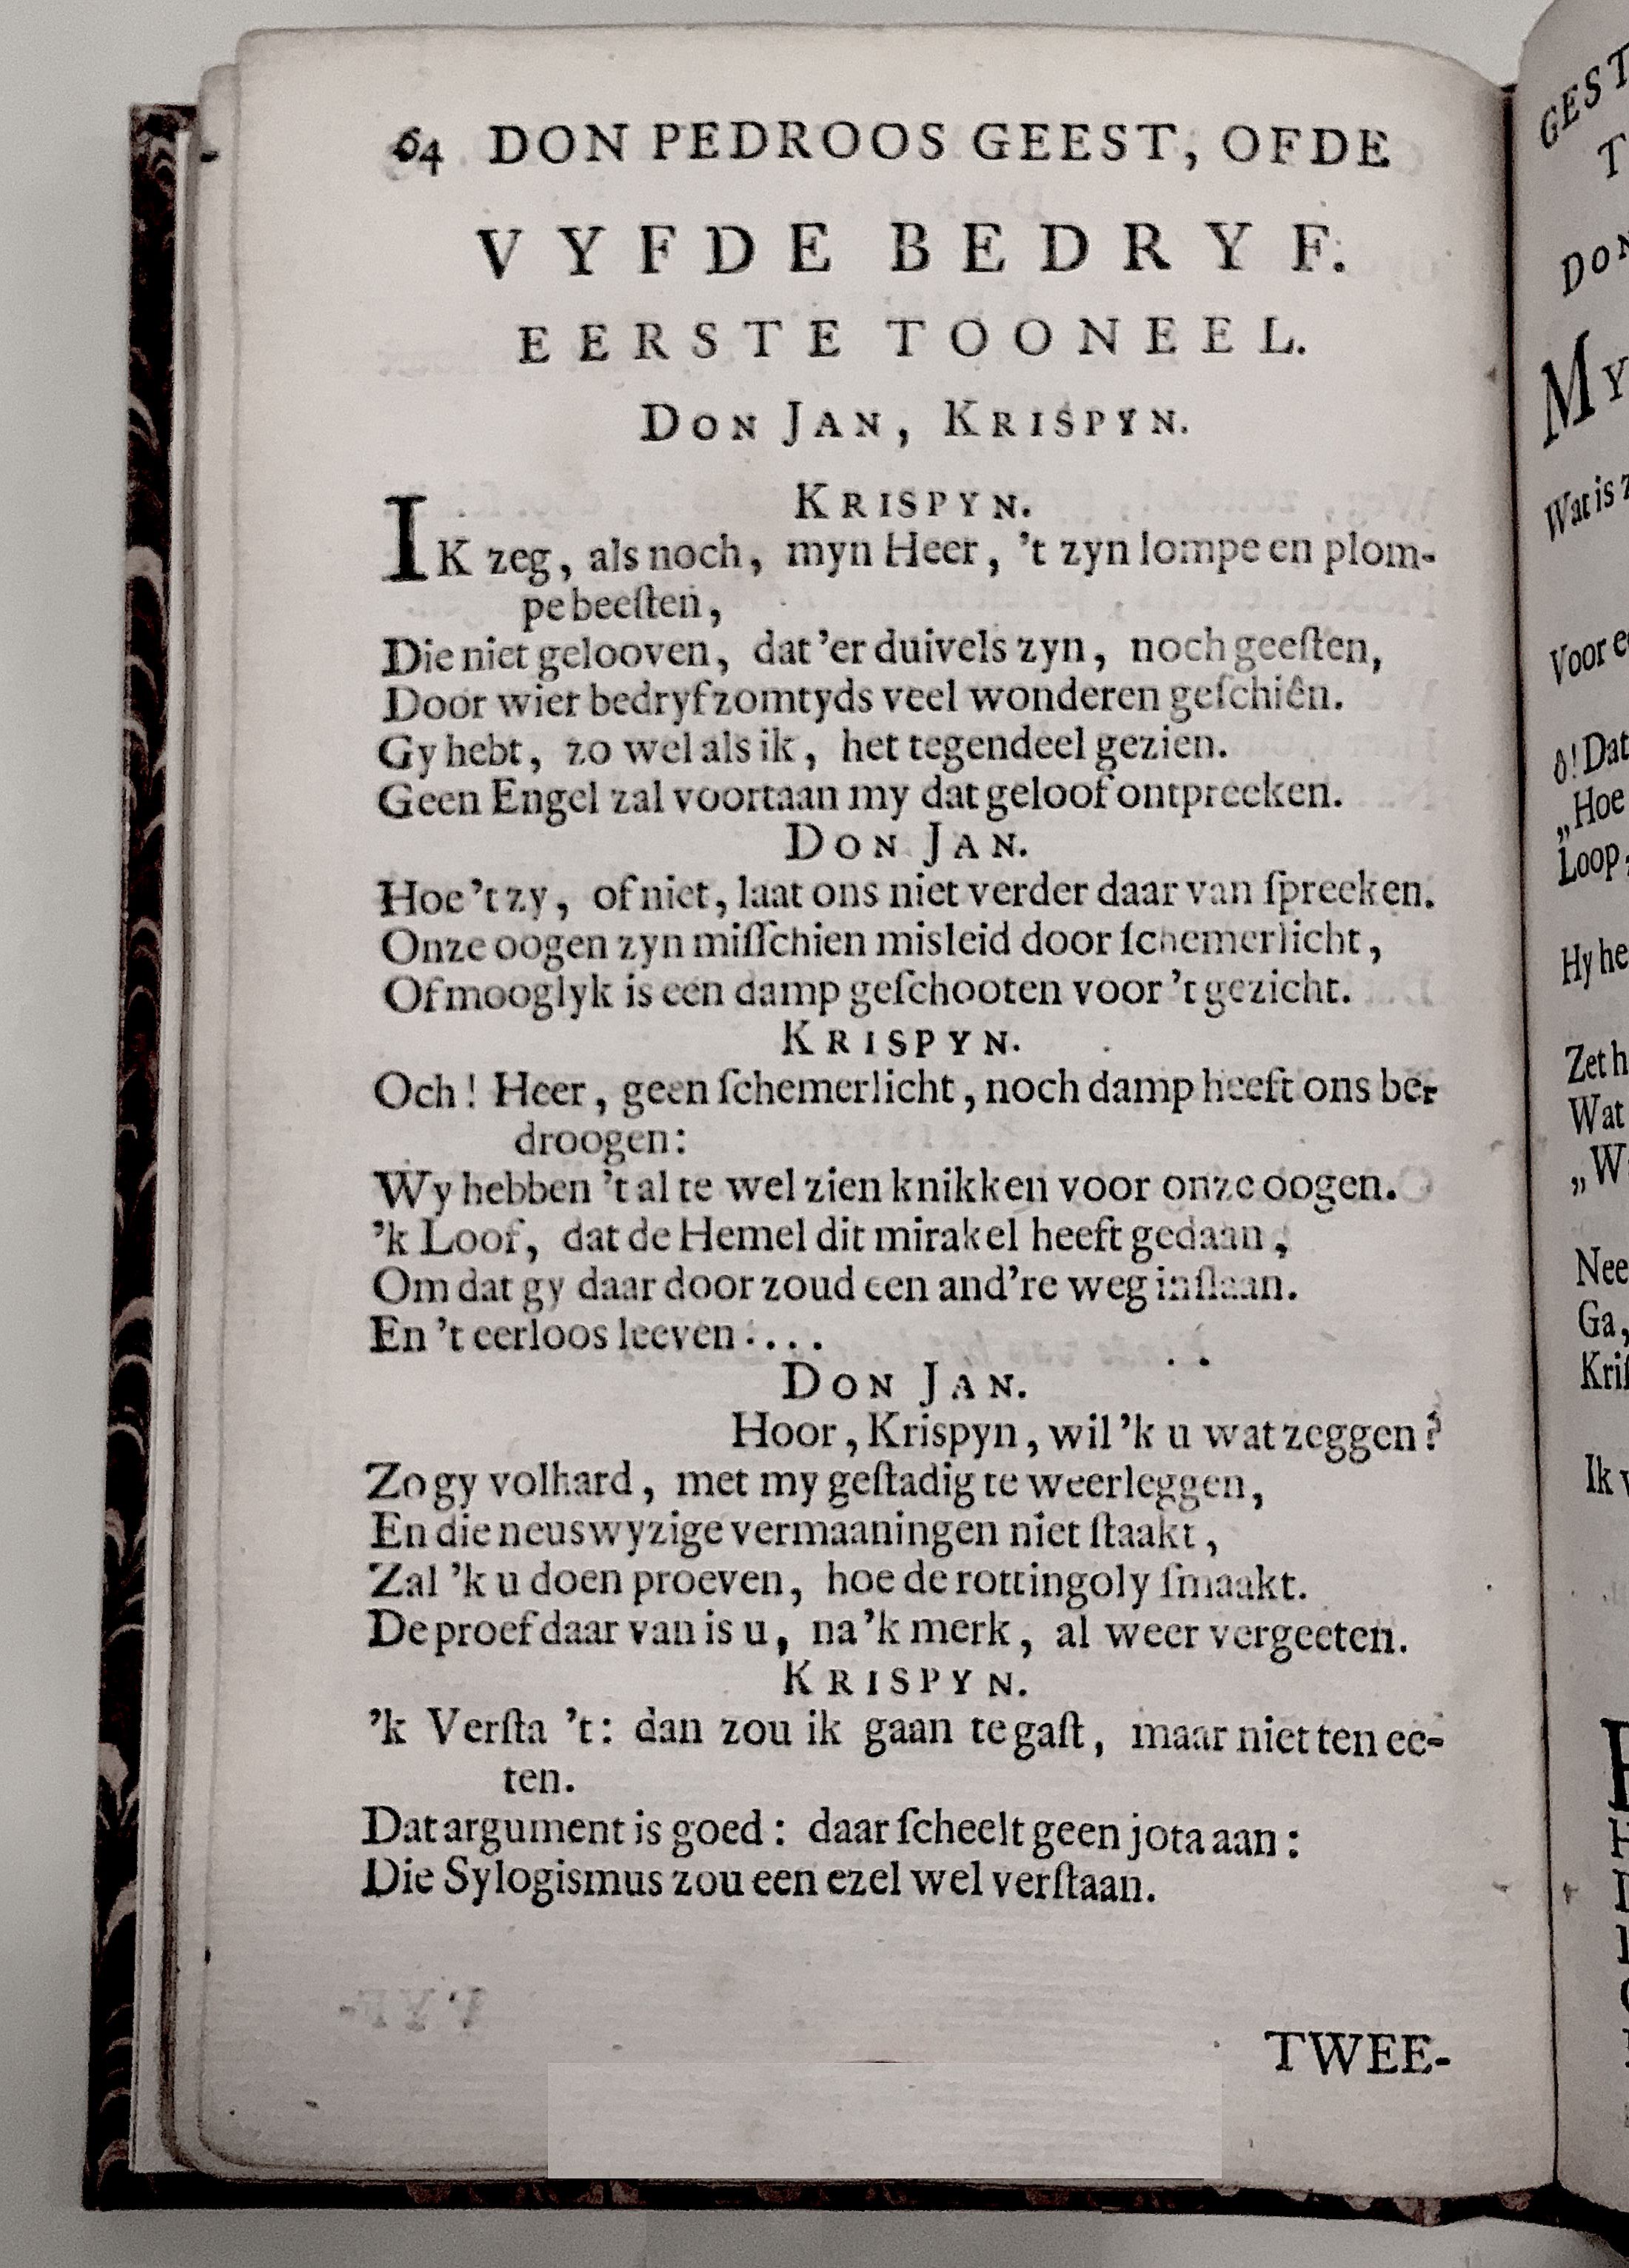 64 DON PEDROOS GEEST, OF DE
VYFDE BEDRYF.
EERSTE TOONEEL.
DON JAN, KRISPYN.
KRISPYN.
IK zeg, als noch, myn Heer, 't zyn lompe en plom-
pe beeſten,
Die niet gelooven, dat 'er duivels zyn, noch geeſten,
Door wier bedryf zomtyds veel wonderen geſchiên.
Gy hebt, zo wel als ik, het tegendeel gezien.
Geen Engel zal voortaan my dat geloof ontpreeken.
DON JAN.
Hoe 't zy, of niet, laat ons niet verder daar van ſpreeken.
Onze oogen zyn miſſchien misleid door ſchemerlicht,
Of mooglyk is een damp geſchooten voor 't gezicht.
KRISPYN.
Och! Heer, geen ſchemerlicht, noch damp heeft ons be-
droogen:
Wy hebben 't al te wel zien knikken voor onze oogen.
'k Loof, dat de Hemel dit mirakel heeft gedaan,
Om dat gy daar door zoud een and're weg inſlaan.
En 't eerloos leeven....
DON JAN.
Hoor, Krispyn, wil 'k u wat zeggen?
Zo gy volhard, met my geſtadig te weerleggen,
En die neuswyzige vermaaningen niet ſtaakt,
Zal 'k u doen proeven, hoe de rottingoly ſmaakt.
De proef daar van is u, na 'k merk, al weer vergeeten.
KRISPYN.
'k Verſta 't: dan zou ik gaan te gaſt, maar niet ten ee-
ten.
Dat argument is goed: daar ſcheelt geen jota aan:
Die Sylogismus zou een ezel wel verſtaan.
TWEE-
GEST
T
DON
MY
Wat is
Voor
ô! Dat
„Hoe
Loop,
Hy he
Zet h
Wat
„W
Nee
Ga,
Kriſ
Ik